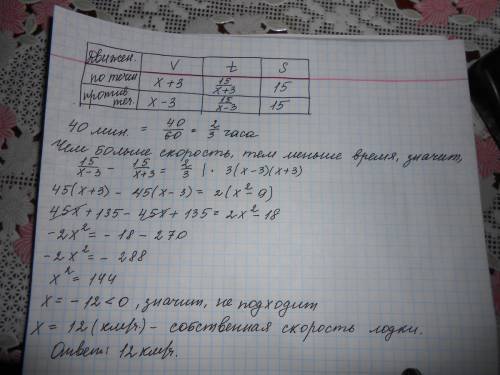 Движен. V t S
по течи x+3 15/x+3 15
против теч. x-3 15/x-3 15
40 мин. = 40/60 = 2/3 часа
Чем больше скорость, тем меньше время, значит,
15/x-3 - 15/x+3 = 2/3 | · 3(x-3)(x+3)
45(x+3) - 45(x-3) = 2(x²-9)
45x + 135 - 45x + 135 = 2x² - 18
-2x² = -18 - 270
-2x² = -288
x² = 144
x = -12 < 0, значит, не подходит
x = 12 (км/ч) - собственная скорость лодки.
Ответ: 12 км/ч.